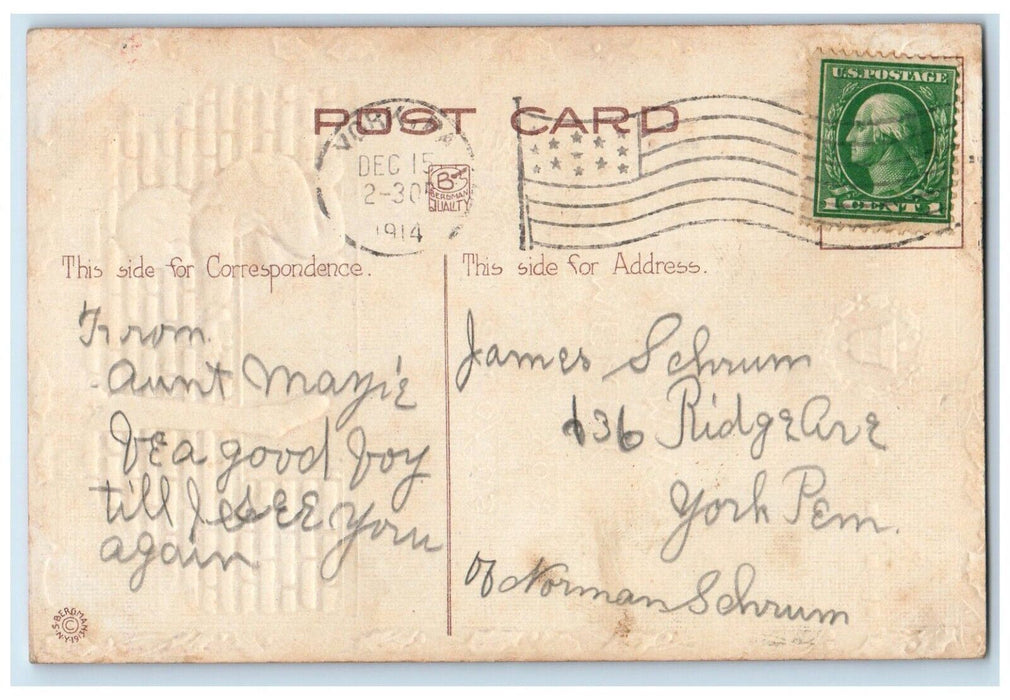 POST CARD
YORK, PA
DEC 15
2-30P
1914
B
BERGMAN
QUALITY
U.S. POSTAGE
1 CENT 1
This side for Correspondence.
This side for Address.
From
Aunt Mazie
be a good boy
till I see you
again
James Schrum
636 Ridge Ave
York Penn.
of Norman Schrum